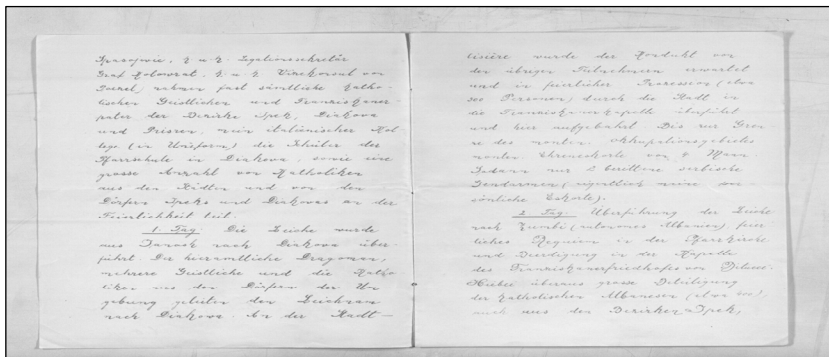 Prasojevic, k. u. k. Legationssekretär
Graf Kolowrat, k. u. k. Vizekonsul von
nehmen fast sämtliche katho-
lischen Geistlichen und Franziskaner-
pater der Bezirke Ipek, Diakova
und Prisren, mein italienischer Kol-
lege (in Uniform) die Schüler der
Pfarrschule in Diakova, sowie eine
grosse Anzahl von Katholiken
aus den Städten und von den
Dörfern Ipeks und Diakovas an der
Feierlichkeit teil.
1. Tag: Die Leiche wurde
aus Janosh nach Diakova über-
führt. Der hieramtliche Dragoman,
mehrere Geistliche und die Katho-
liken aus den Dörfern der Um
gebung geleiten den Leichnam
nach Diakova. An der Stadt-
lisière wurde der Kondukt von
den übrigen Teilnehmern erwartet
und in feierlicher Prozession (etwa
300 Personen) durch die Stadt in
die Franziskanerkapelle überführt
und hier aufgebahrt. Bis zur Gren-
ze des monten. Okkupationsgebietes
monten. Ehreneskorte von 4 Mann.
Sodann nur 2 berittene serbische
Gendarmen (eigentlich meine per-
sönliche Eskorte).
2. Tag: Überführung der Leiche
nach Zumbi (autonomes Albanien) feier-
liches Requiem in der Pfarrkirche
und Beerdigung in der Kapelle
des Franziskanerfriedhofes von
überaus grosse Beteiligung
der katholischen Albanesen (etwa
auch aus den Bezirken Ipek,